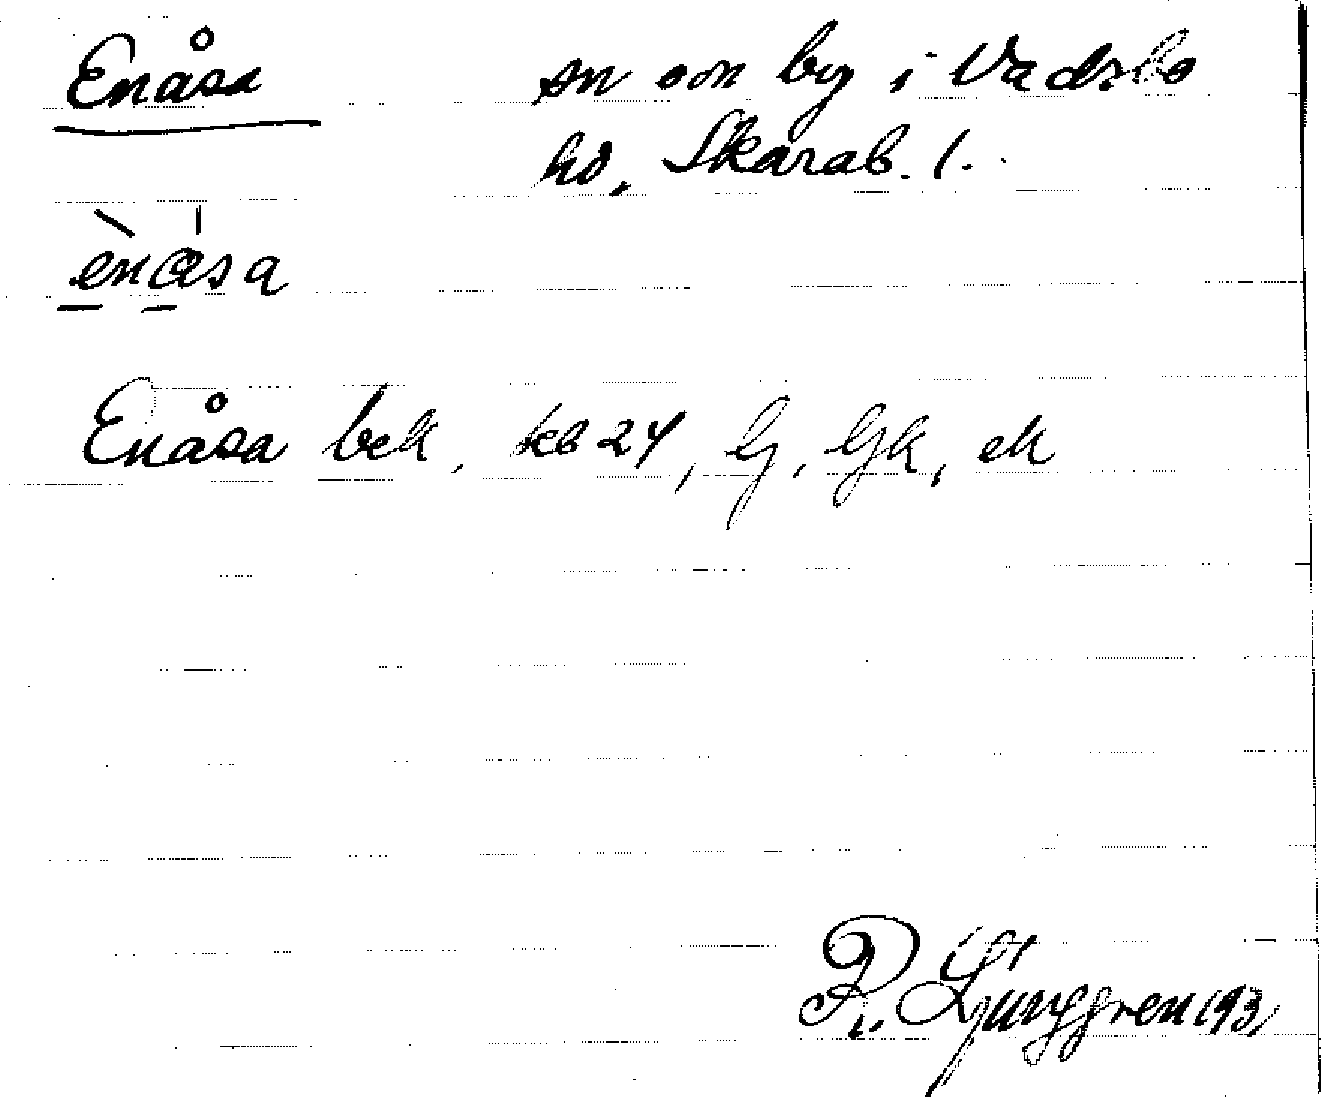 Enåsa sn och by i Vadsbo
hd, Skarab. l.
enåsa
Enåsa bek, kb 24, lj, ljk, ek
R. Ljunggren 1931